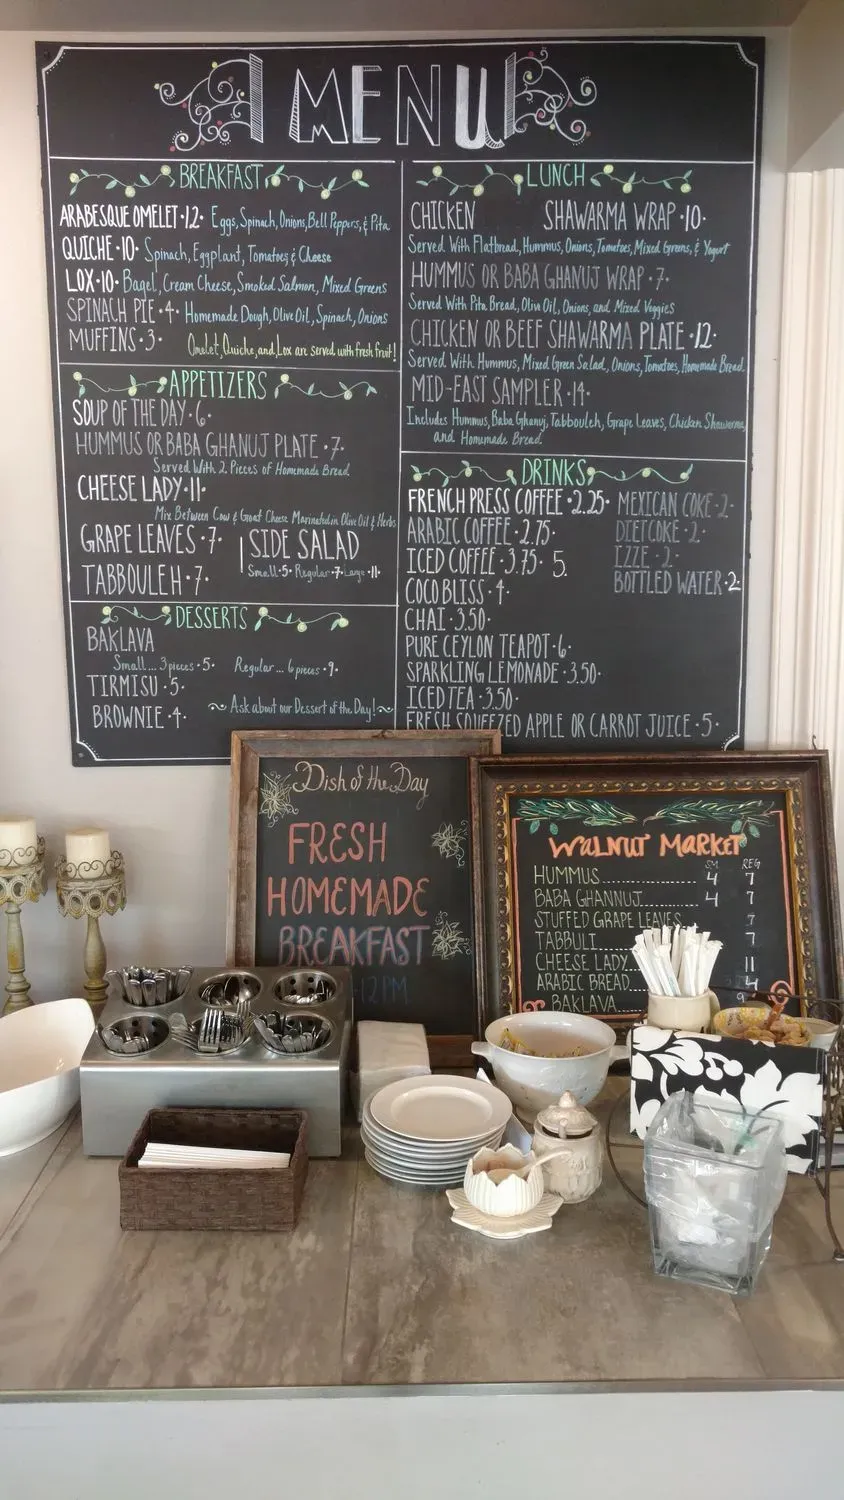 MENU
BREAKFAST
ARABESQUE OMELET•12• Eggs, Spinach, Onions, Bell Peppers, & Pita
QUICHE•10• Spinach, Eggplant, Tomatoes, & Cheese
LOX•10• Bagel, Cream Cheese, Smoked Salmon, Mixed Greens
SPINACH PIE•4• Homemade Dough, Olive Oil, Spinach, Onions
MUFFINS•3•
Omelet, Quiche, and Lox are served with fresh fruit!
APPETIZERS
SOUP OF THE DAY•6•
HUMMUS OR BABA GHANUJ PLATE•7•
Served With 2 Pieces of Homemade Bread
CHEESE LADY•11•
Mix Between Cow & Goat Cheese Marinated in Olive Oil & Herbs
GRAPE LEAVES•7•
TABBOULEH•7•
SIDE SALAD
Small•5• Regular•7• Large•11•
DESSERTS
BAKLAVA
Small... 3 pieces•5• Regular... 6 pieces•9•
TIRMISU•5•
BROWNIE•4•
~Ask about our Dessert of the Day!~
LUNCH
CHICKEN SHAWARMA WRAP•10•
Served With Flatbread, Hummus, Onions, Tomatoes, Mixed Greens, & Yogurt
HUMMUS OR BABA GHANUJ WRAP•7•
Served With Pita Bread, Olive Oil, Onions, and Mixed Veggies
CHICKEN OR BEEF SHAWARMA PLATE•12•
Served With Hummus, Mixed Green Salad, Onions, Tomatoes, Homemade Bread
MID-EAST SAMPLER•14•
Includes Hummus, Baba Ghanuj, Tabbouleh, Grape Leaves, Chicken Shawarma,
and Homemade Bread
DRINKS
FRENCH PRESS COFFEE•2.25•
ARABIC COFFEE•2.75•
ICED COFFEE•3.75• 5.
COCO BLISS•4•
CHAI•3.50•
PURE CEYLON TEAPOT•6•
SPARKLING LEMONADE•3.50•
ICED TEA•3.50•
FRESH SQUEEZED APPLE OR CARROT JUICE•5•
MEXICAN COKE•2•
DIET COKE•2•
IZZE•2•
BOTTLED WATER•2•
Dish of the Day
FRESH
HOMEMADE
BREAKFAST
-12PM
WALNUT MARKET
SM REG
HUMMUS 4 7
BABA GHANNUJ 4 7
STUFFED GRAPE LEAVES 7
TABBULI 7
CHEESE LADY 11
ARABIC BREAD 4
BAKLAVA 9